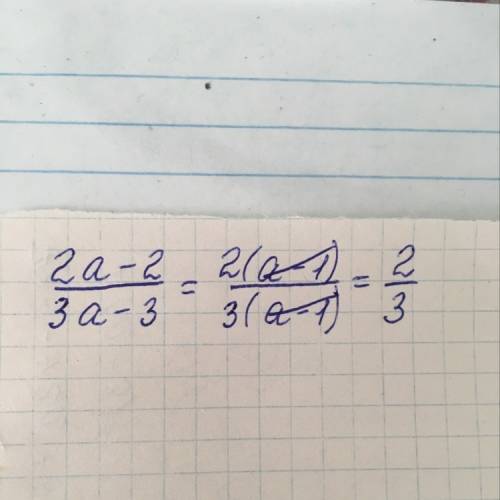 (2a-2)/(3a-3) = 2(a-1)/3(a-1) = 2/3